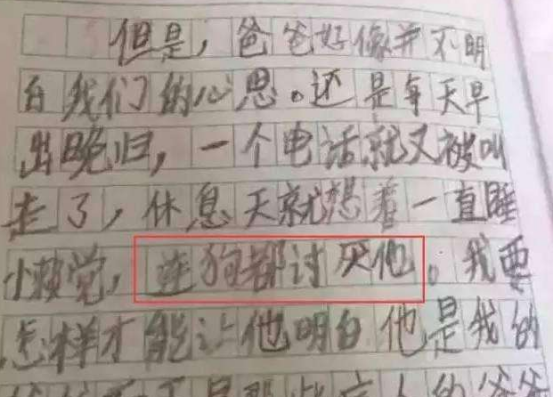 但是，爸爸好像并不明
白我们的心思。还是每天早
出晚归，一个电话就又被叫
走了，休息天就想着一直睡
小懒觉，连狗都讨厌他。我要
怎样才能让他明白他是我的